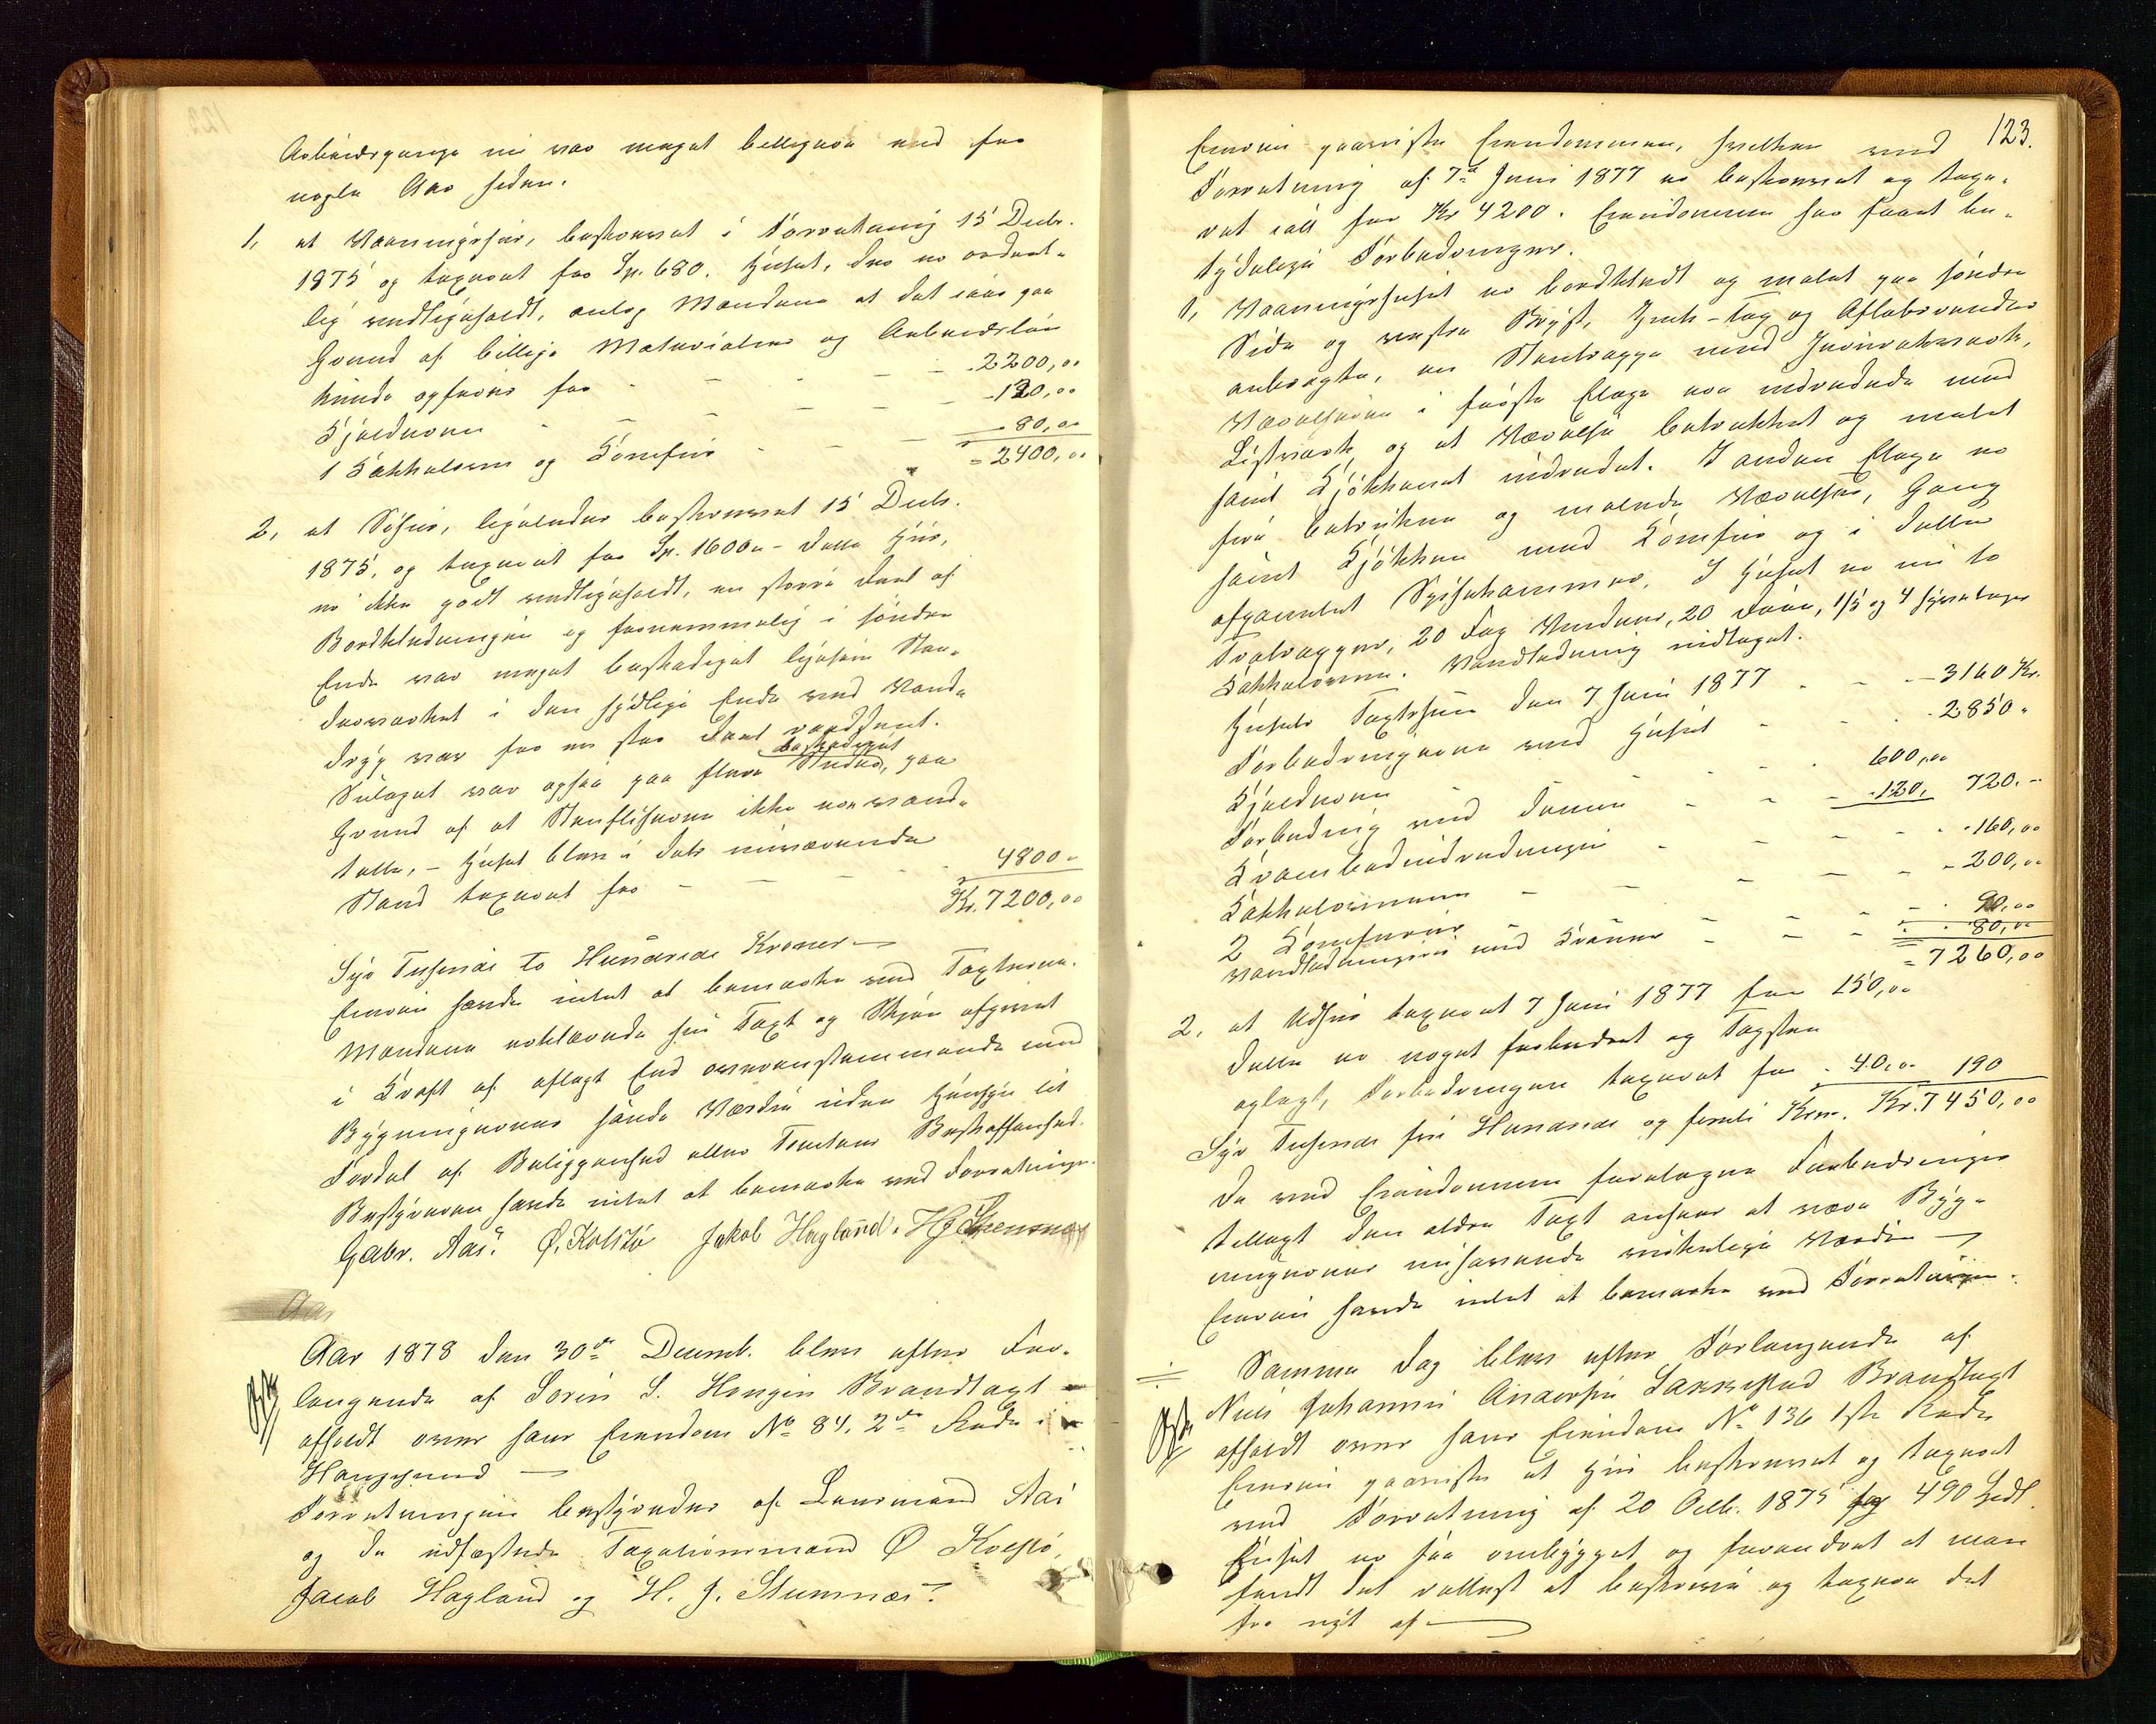 Arbeidspenge nu var meget billigere end for
nogle Aar siden.
1, et Vaaningshus, beskrevet i Forretning 15 Decbr.
1875 og taxeret for Sp. 680. Huset, der er ordent-
lig vedligeholdt, antog Mændene at det iaar paa
Grund af billige Materialier og Arbeidsløn
kunde opføres for - - - - 2200,00
Kjelderen - - - - 120,00
1 Kakkelovn og Komfur - - - 80,00
= 2400,00
2, et Søhus, ligeledes beskrevet 15 Decbr.
1875, og taxeret for Sp. 1600 - dette Huus,
er ikke godt vedligeholdt, en større Deel af
Bordklædningen og fornemmelig i søndre
Ende var meget beskadiget ligesom Sten-
derværket i den sydlige Ende ved Vand-
dryg var for en stor Deel raaddent.
Sulaget var ogsaa paa flere Steder, beskadiget paa
Grund af at Steenfliserne ikke vare vand-
tætte, - Huset blev i dets nuværende
Stand taxeret for - - - - 4800 -
Kr. 7200,00
Syv Tusende to Hundrede Kroner -
Eieren havde intet at bemærke ved Taxterne.
Mændene erklærede sin Taxt og Skjøn afgivet
i Kraft af aflagt Eed overensstemmende med
Bygningernes sande Værdie uden Hensyn til
Fordel af Beliggenhed eller Tomtens Beskaffenhed.
Bestyreren havde intet at bemærke ved Forretningen.
Gabr. Aas. Ø. Kolstø Jakob Hagland. H J Stensnæs
Aar
Aar 1878 den 30de Decemb. blev efter For-
langende af Soren S. Haugen Brandtaxt
afholdt over hans Eiendom No 84. 2de Rode i
Haugesund -
Forretningen bestyredes af Lensmand Aas
og de udsæstede Taxationsmænd Ø Kolstø,
Jacob Hagland og H. J. Stensnæs.
123.
Eieren paaviste Eiendommen, hvilken ved
Forretning af 7de Juni 1877 er beskrevet og taxe-
ret ialt for Kr 4200. Eiendommen har faaet be-
tydelige Forbedringer.
1, Vaaningshuset er bordklædt og malet paa søndre
Side og vestre Bryst, Zink-Tag og Afløbsrender
anbragte, en Steentrappe med Jernrækværk,
Værelserne i første Etage ere indredede med
Listværk, og et Værelse betrækket og malet
samt Kjøkkenet indredet. I anden Etage er
fire betrukne og malede Værelser, Gang
samt Kjøkken med Komfur og i dette
afpanelet Spisekammer. I Huset er nu to
Trætrapper, 20 Fag Vinduer, 20 Døre, 1/5 og 4 Etages
Kakkelovne. Vandledning indlaget.
Husets Taxtsum den 7 Juni 1877 - - - 3160 Kr.
Forbedringerne ved Huset - - - 2850 -
Kjelderen - - - 600,00
Forbedring ved denne - - - 120, 720. -
- - - 160,00
Kakkelovnene - - - 200,00
2 Komfurer - - - 90,00
Vandledningen med Kraner - - - 80,00
= 7260,00
2, et Udhus taxeret 7 Juni 1877 for 150,00
dette er noget forbedret og Tagsten
oplagt, Forbedringen taxeret for - 40,00 190
Syv Tusende fire Hundrede og femti Kron. Kr. 7450,00
De ved Eiendommen foretagne Forbedringer
tillagt den ældre Taxt ansaaes at være Byg-
ningernes nuhavende virkelige Værdie -
Eieren havde intet at bemærke ved Forretningen.
÷ Samme Dag blev efter Forlangende af
Niels Johannes Andersen Lakkestad Brandtaxt
afholdt over hans Eiendom No 136 1ste Rode
Eieren paaviste et Hus beskrevet og taxeret
ved Forretning af 20 Octb. 1875 for 490 Spdl.
Huset er saa ombygget og forandret at man
fandt det rettest at beskrive og taxere det
for nyt af -